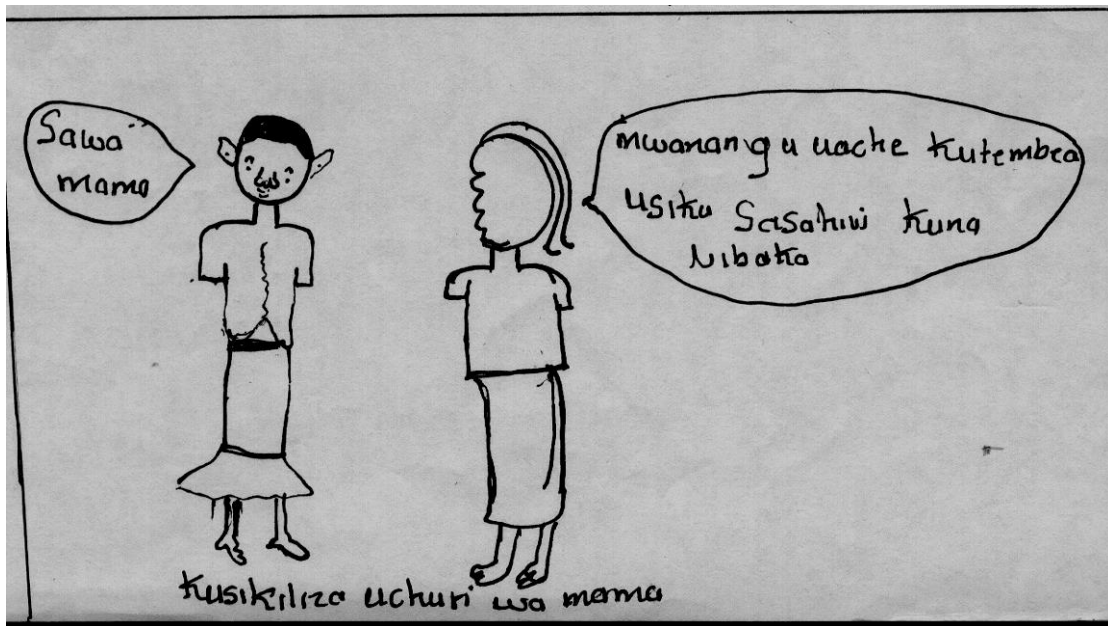 Sawa
mama
mwanangu uache kutembea
usiku Sasahivi kuna
Vibaka
Kusikiliza uchuri wa mama